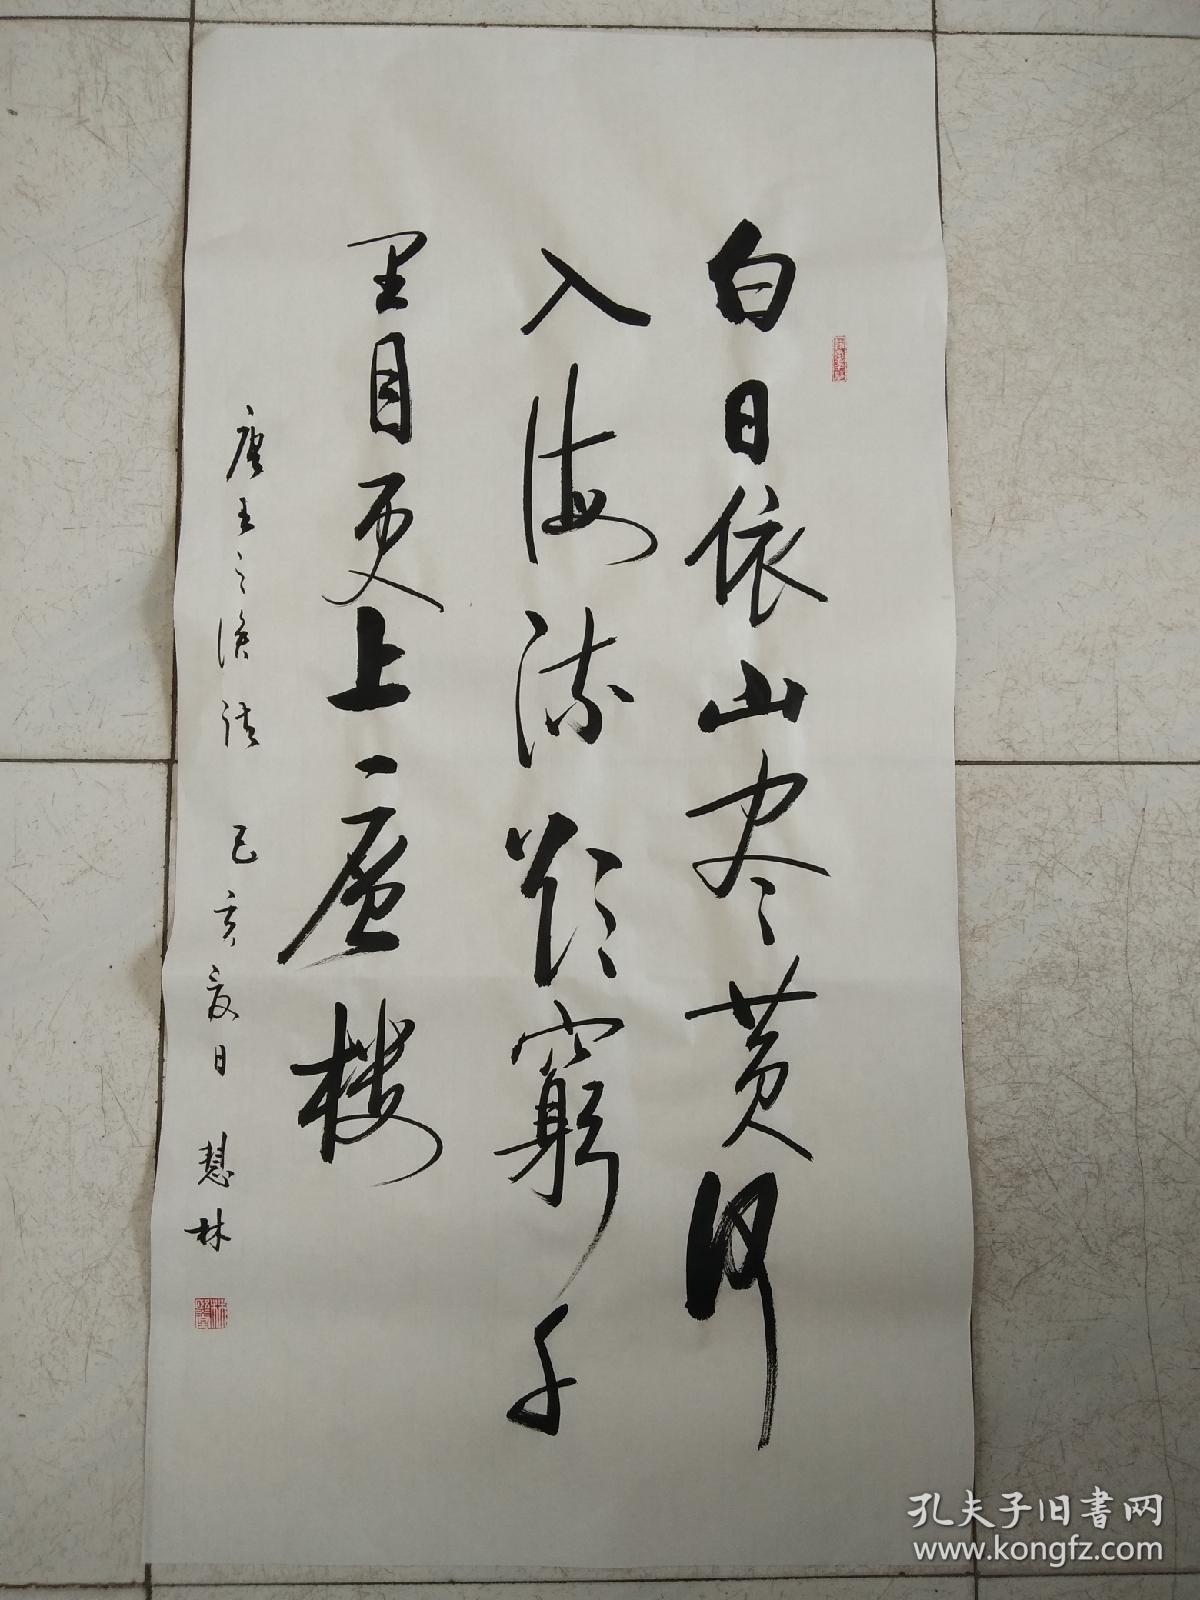 白日依山尽黄河
入海流欲穷千
里目更上一层楼
唐王之涣诗 己亥夏日 慧林
孔夫子旧书网
www.kongfz.com